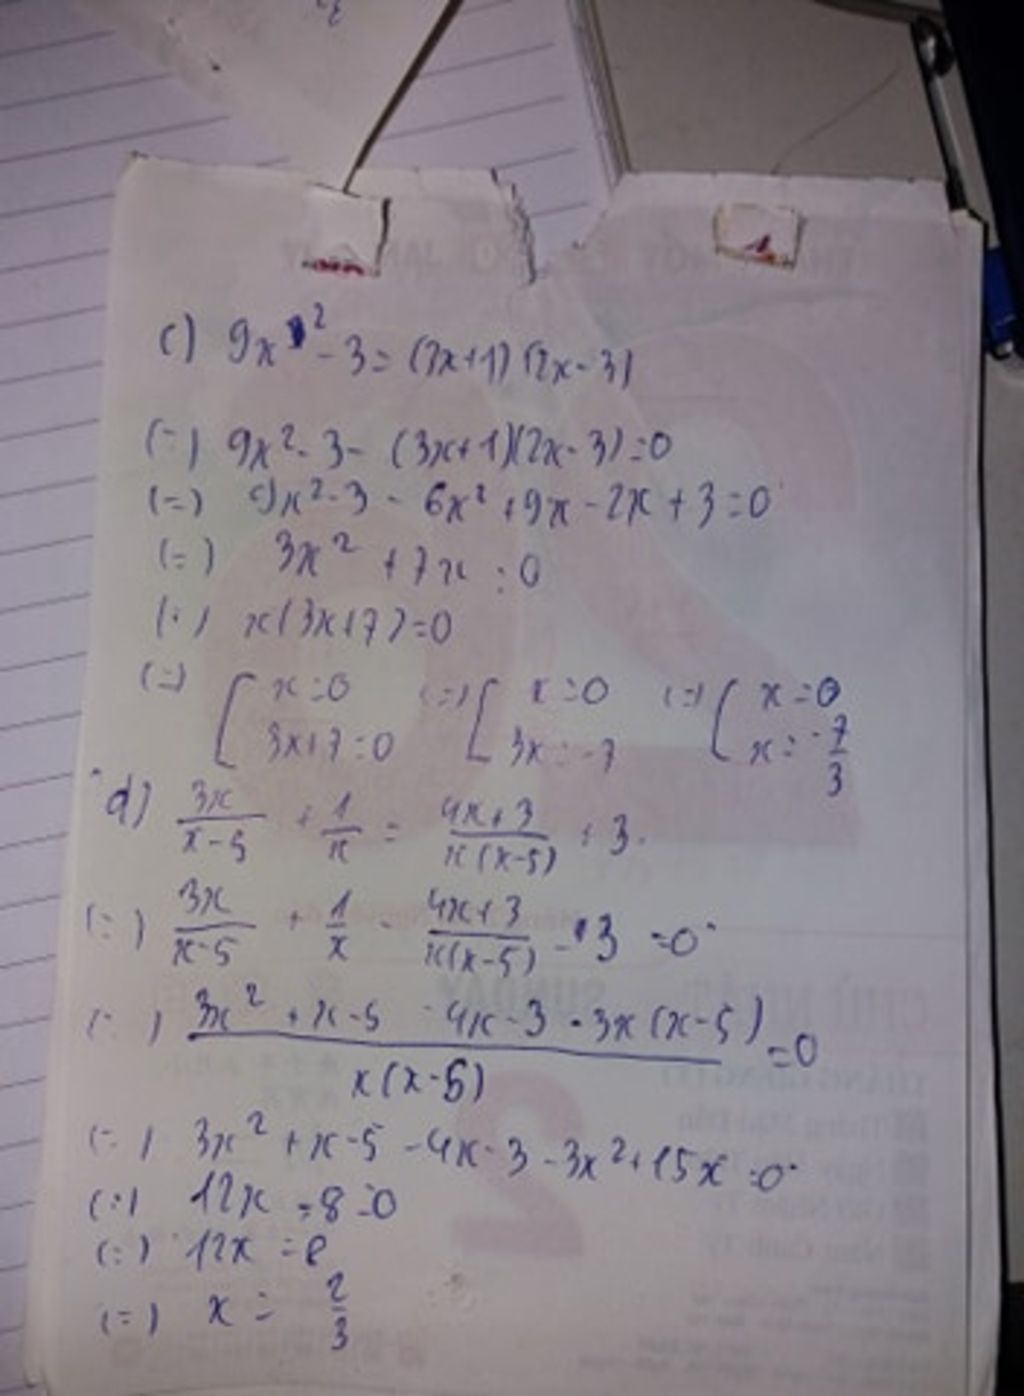 c) 9x² - 3 = (3x+1)(2x-3)
(=) 9x² - 3 - (3x+1)(2x-3) = 0
(=) 9x² - 3 - 6x² + 9x - 2x + 3 = 0
(=) 3x² + 7x = 0
(=) x(3x+7) = 0
(=) [ x = 0 (=) [ x = 0 (=) [ x = 0
3x+7 = 0 3x = -7 x = -7/3
d) 3x/(x-5) + 1/x = (4x+3)/(x(x-5)) + 3.
(=) 3x/(x-5) + 1/x - (4x+3)/(x(x-5)) - 3 = 0
(=) (3x² + x-5 - 4x - 3 - 3x(x-5))/(x(x-5)) = 0
(=) 3x² + x - 5 - 4x - 3 - 3x² + 15x = 0
(=) 12x - 8 = 0
(=) 12x = 8
(=) x = 2/3